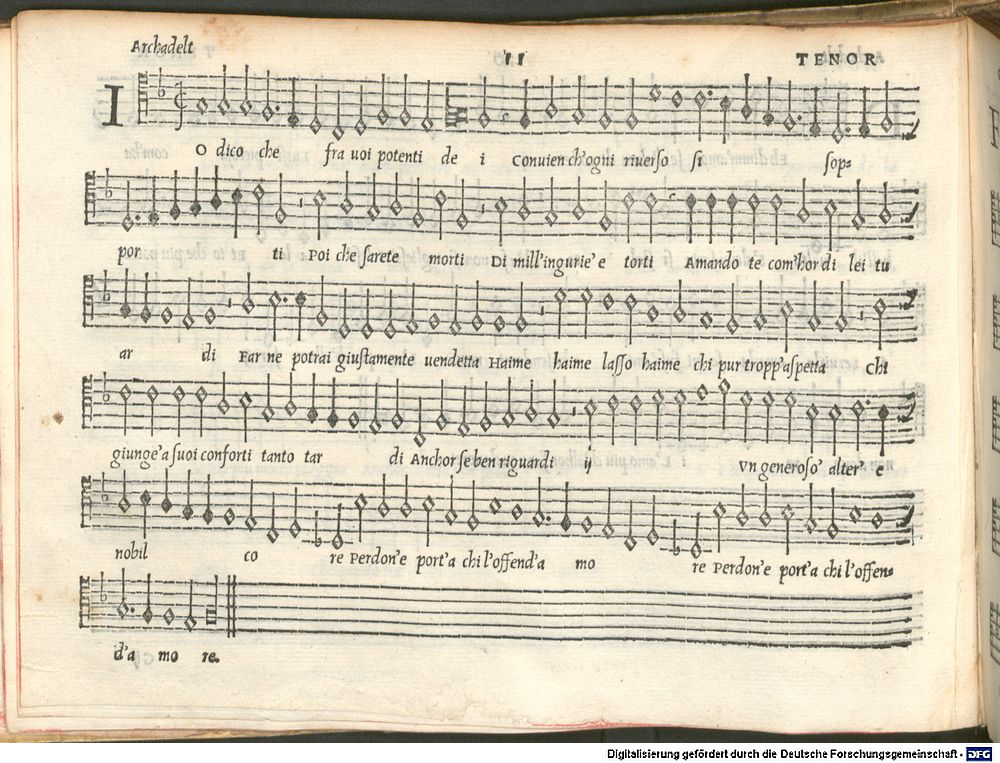 Archadelt
11
TENOR
IO dico che fra uoi potenti de i Conuien ch'ogni riuerso si sop=
por ti Poi che sarete morti Di mill'ingurie' e torti Amando te com'hor di lei tu
ar di Far ne potrai giustamente uendetta Haime haime lasso haime chi pur tropp'aspetta Chi
giunge'a suoi conforti tanto tar di Anchor se ben riguardi ij Vn generoso' alter' e
nobil co re Perdon'e port'a chi l'offend'a mo re Perdon'e port'a chi l'offen=
d'a mo re.
Digitalisierung gefördert durch die Deutsche Forschungsgemeinschaft - DFG